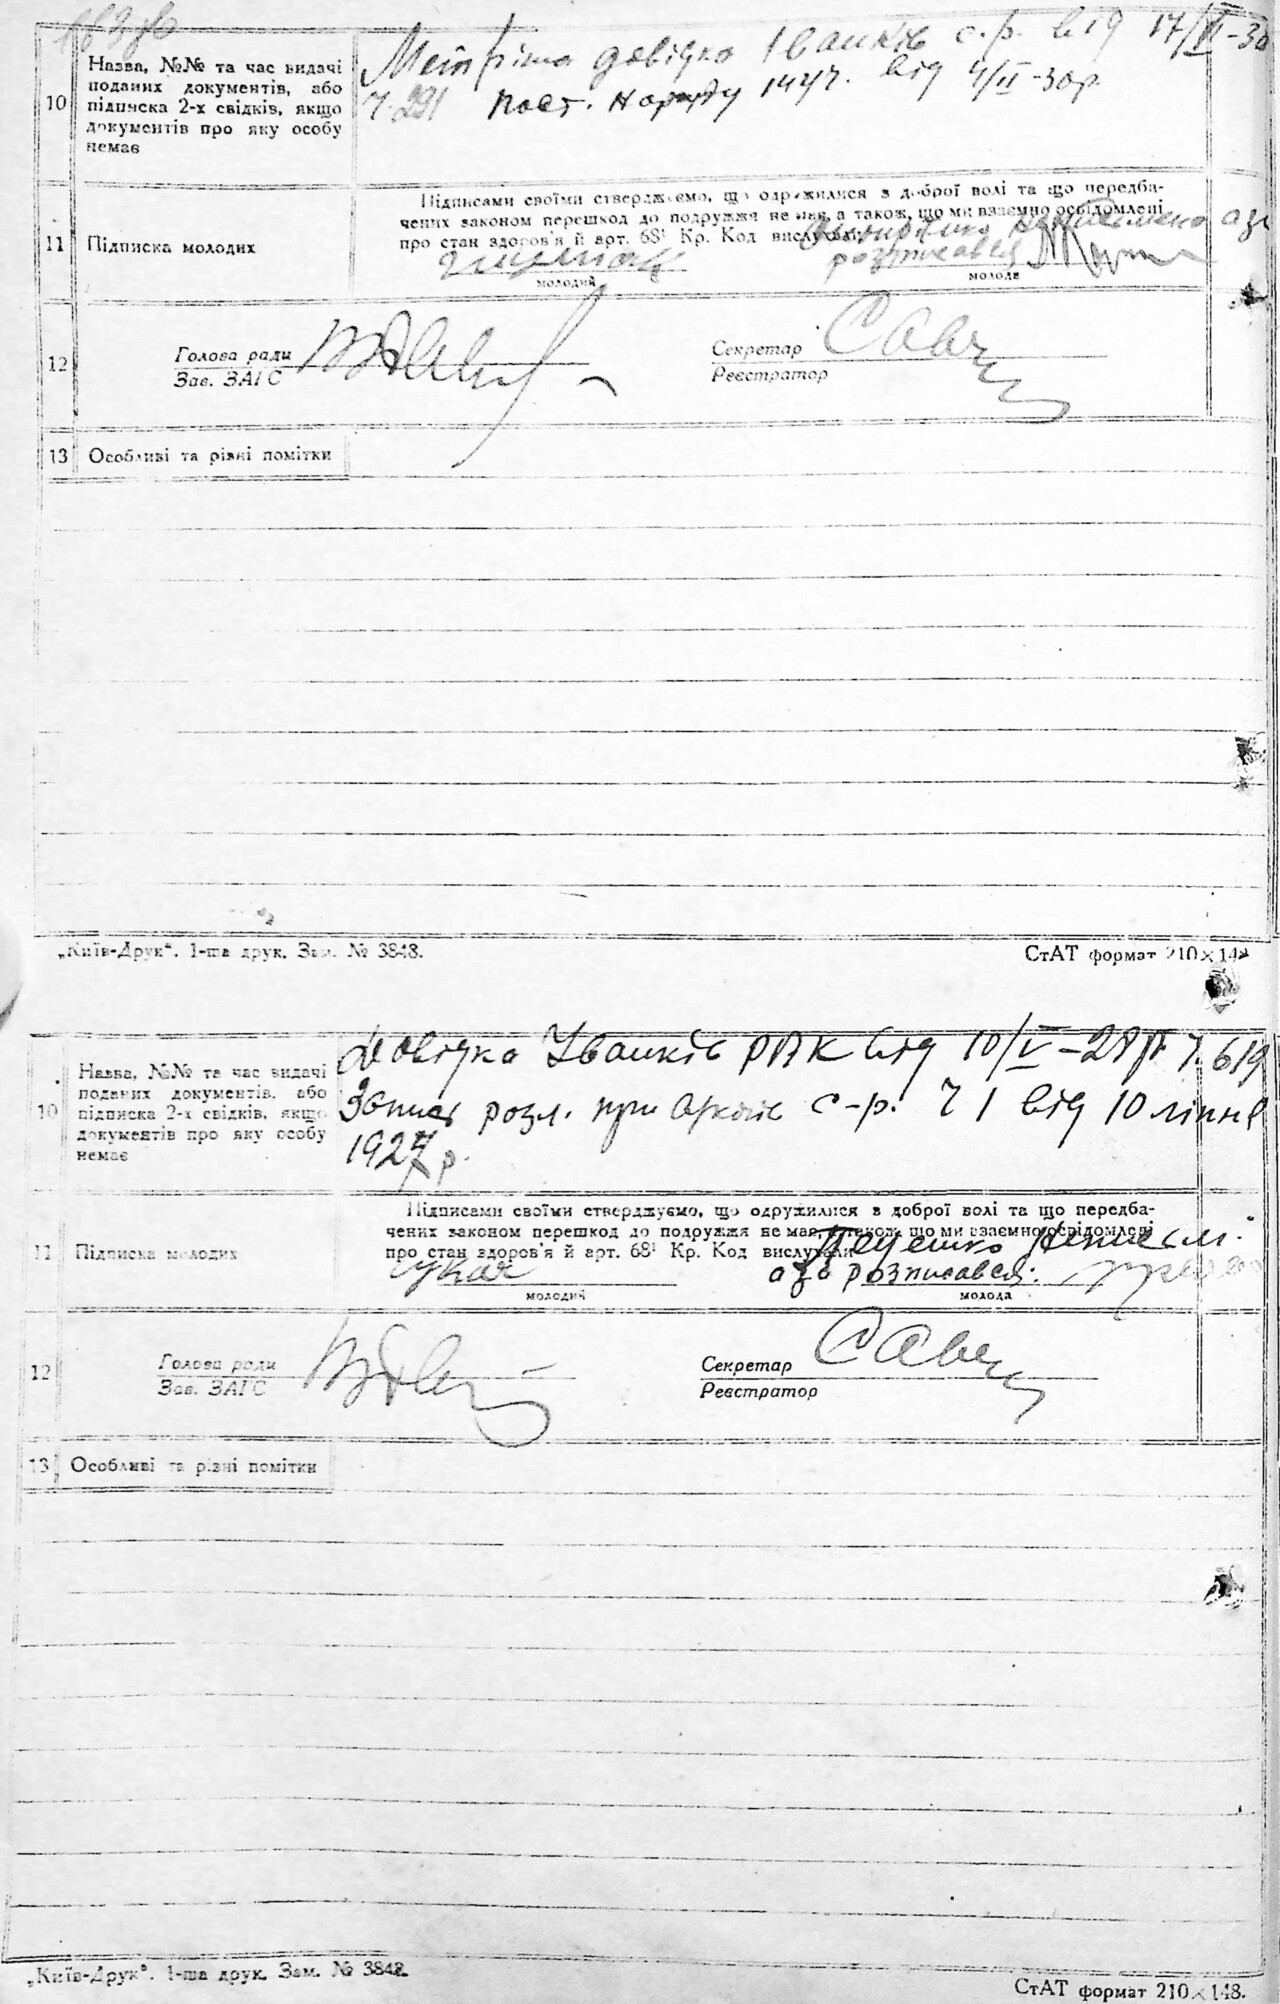 Метрічна довідка Іванків с.р. від 17/VI-30
10 Назва, №№ та час видачі поданих документів, або підписка 2-х свідків, якщо документів про яку особу немає
Ч. 291 пост. Нарсуду від 4/II-30р.
Підписами своїми стверджуємо, що одружилися з доброї волі та що передба-
чених законом перешкод до подружжя не має, а також, що ми взаємно освідомлені
11 Підписка молодих
про стан здоров'я й арт. 68¹ Кр. Код вислухали
розписався
молодий молода
12 Голова ради Секретар Савч
Зав. ЗАГС Реєстратор
13 Особливі та різні помітки
„Київ-Друк“. 1-ша друк. Зам. № 3848. СтАТ формат 210×148
Довідка Іванків РВК від 10/V-28р Ч. 619
10 Назва, №№ та час видачі
поданих документів, або
підписка 2-х свідків, якщо
документів про яку особу
немає
Запис розл. при с-р. Ч 1 від 10 липня
1927 р.
Підписами своїми стверджуємо, що одружилися з доброї волі та що передба-
чених законом перешкод до подружжя не має, а також, що ми взаємно освідомлені
11 Підписка молодих
про стан здоров'я й арт. 68¹ Кр. Код вислухали
а за розписався:
молодий молода
12 Голова ради Секретар Савч
Зав. ЗАГС Реєстратор
13 Особливі та різні помітки
„Київ-Друк“. 1-ша друк. Зам. № 3848. СтАТ формат 210×148.